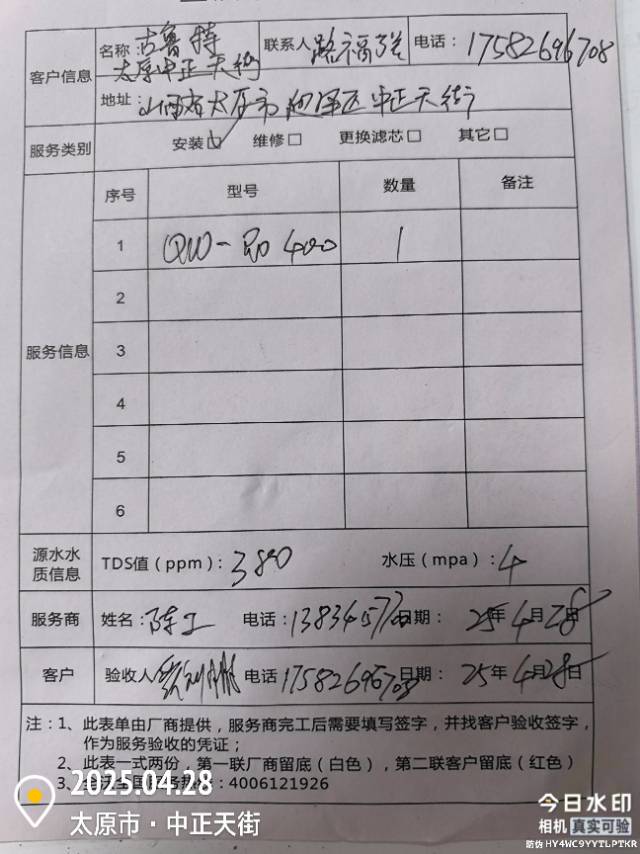 客户信息
名称：古鲁特
太原中正天街
联系人 路福强
电话：17582696708
地址：山西省太原市 区中正天街
服务类别 安装☑ 维修□ 更换滤芯□ 其它□
服务信息
序号 型号 数量 备注
1 QW-R0 400 1
2
3
4
5
6
源水水质信息 TDS值（ppm）：380 水压（mpa）：4
服务商 姓名：陈工 电话：138345773 日期：25年4月28日
客户 验收人 电话 17582696708 日期：25年4月28日
注：1、此表单由厂商提供，服务商完工后需要填写签字，并找客户验收签字，
作为服务验收的凭证；
2、此表一式两份，第一联厂商留底（白色），第二联客户留底（红色）
3、全国 服务热线：4006121926
2025.04.28
太原市·中正天街
今日水印
相机 真实可验
防伪 HY4WC9YYTLPTKR